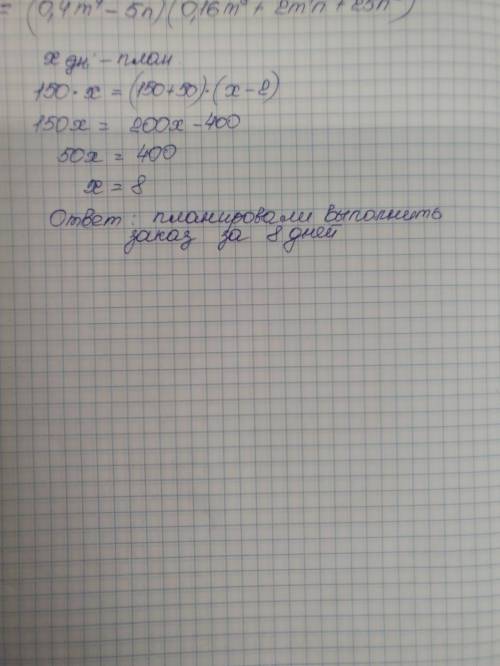 = (0,4m⁴ - 5n)(0,16m⁸ + 2m⁴n + 25n²)
x дн - план
150 · x = (150+50) · (x-2)
150x = 200x - 400
50x = 400
x = 8
Ответ: планировали выполнить
заказ за 8 дней